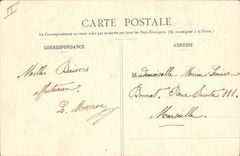 CARTE POSTALE
La Correspondance au recto n'est pas acceptée par tous les Pays Étrangers (Se renseigner à la Poste)
CORRESPONDANCE
ADRESSE
Meilleurs Baisers
affectueux
Mademoiselle Marie Louise
Rue Sainte 111
Marseille